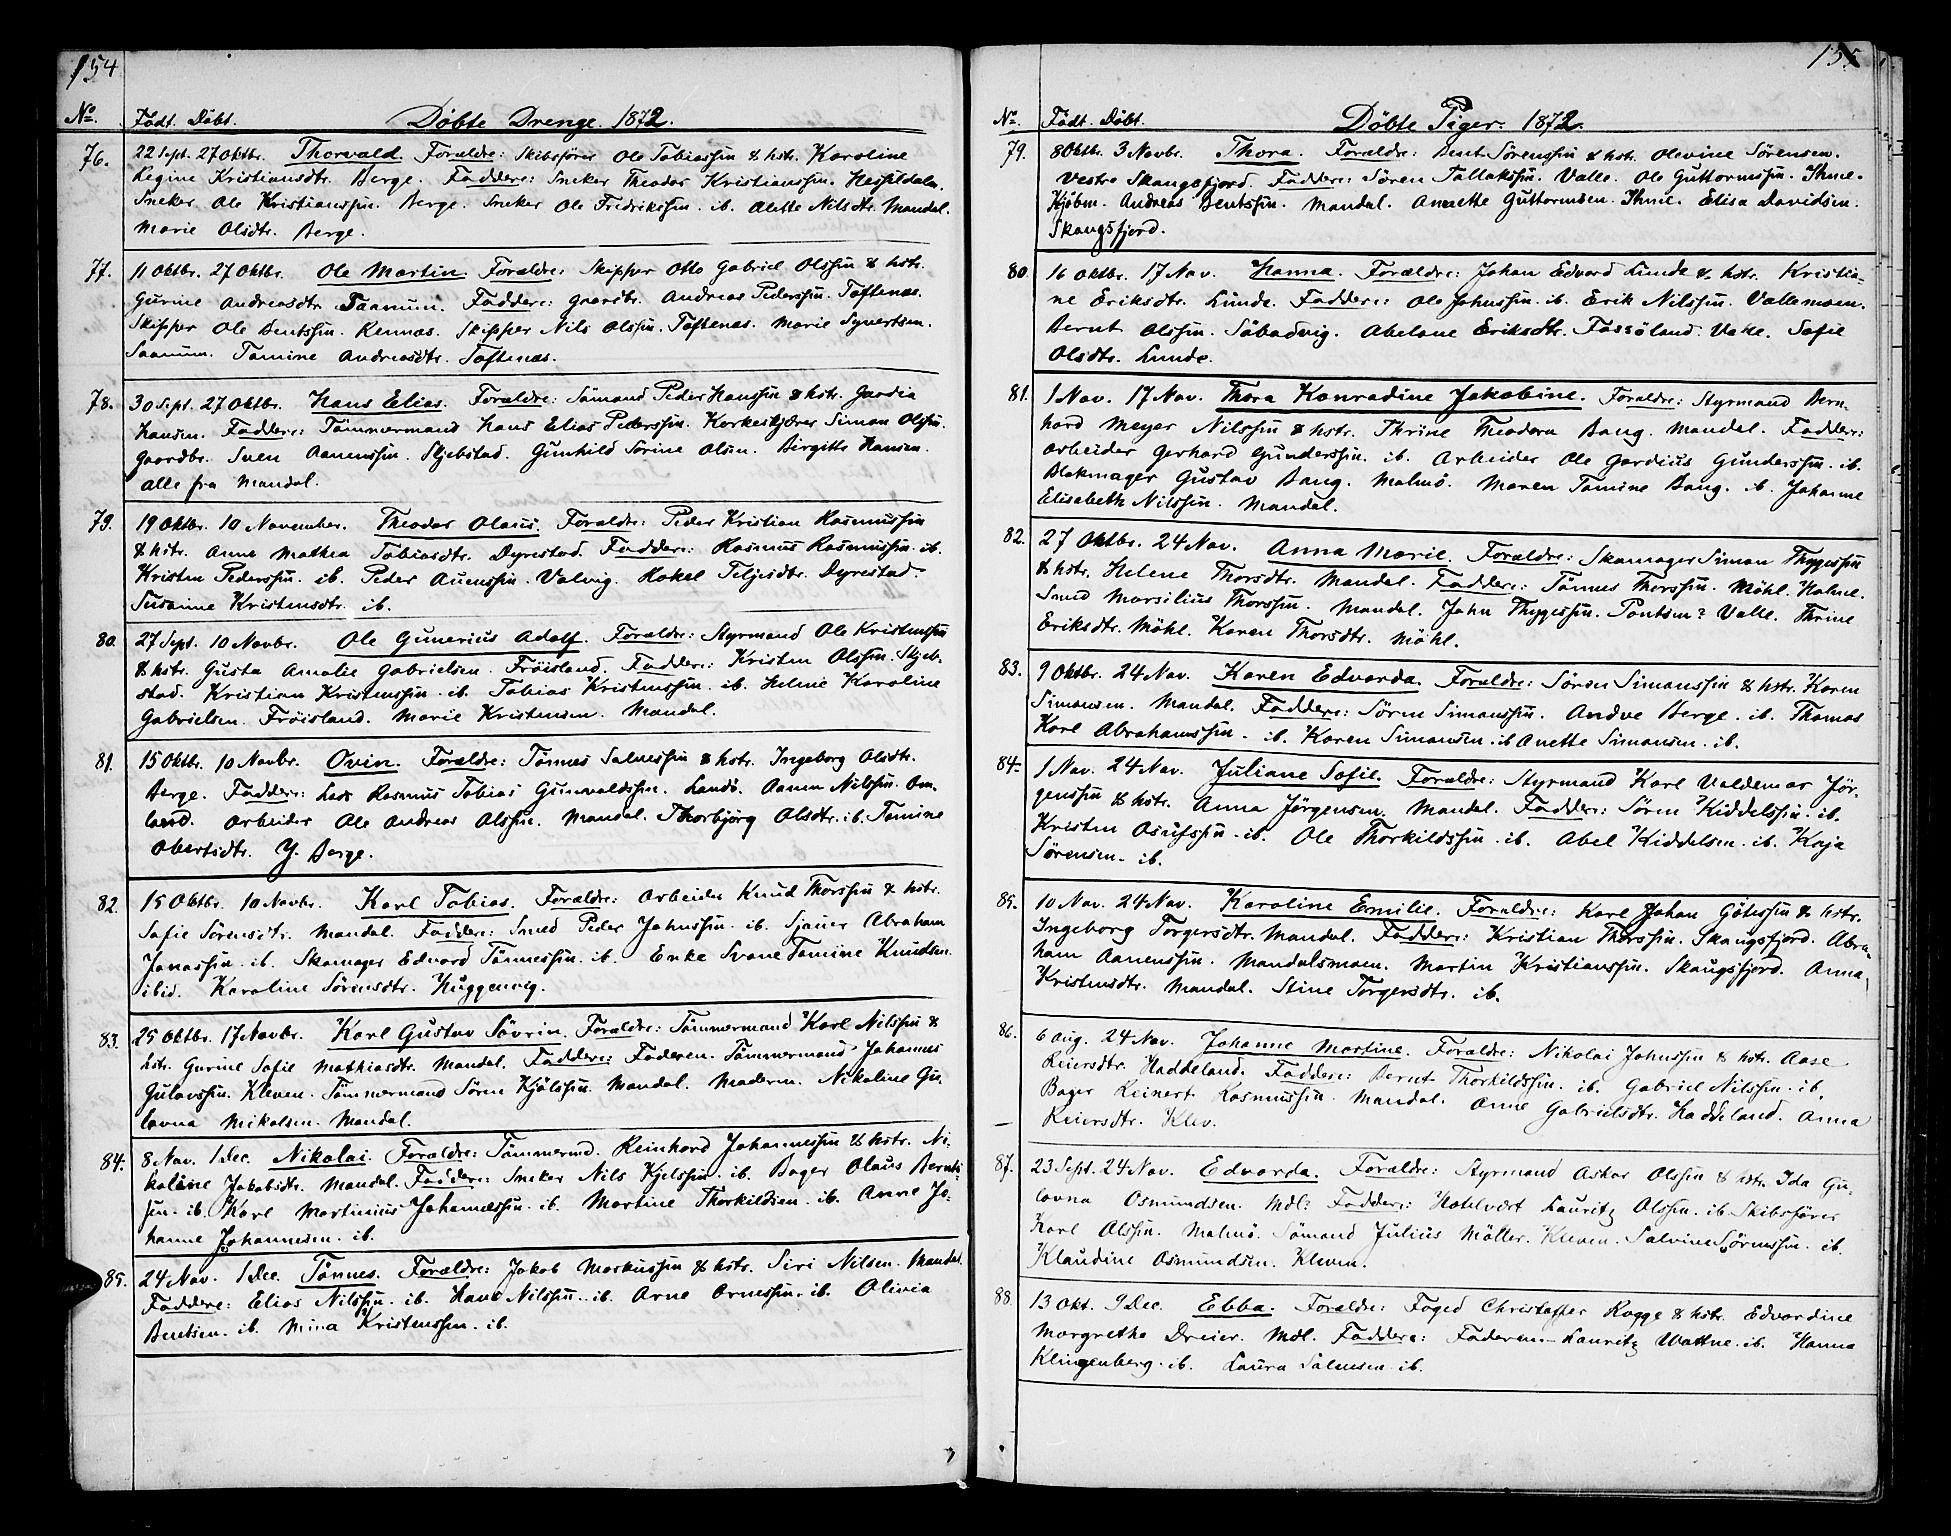 154
No. Födt. Döbt. Döbte Drenge. 1872.
76. 22 Sept. 27 Oktbr. Thorvald. Forældre: Skibsförer Ole Tobiassen & hstr. Karoline
Regine Kristiansdtr. Berge. Faddere: Sneker Theodor Kristianssen. Hesfildalen.
Sneker Ole Kristianssen. Berge. Sneker Ole Fredrikssen. ib. Alette Nilsdtr. Mandal.
Marie Olsdtr. Berge.
77. 11 Oktbr. 27 Oktbr. Ole Martin. Forældre: Skipper Otto Gabriel Olssen & hstr.
Gurine Andreasdtr. Saanum. Faddere: Gaardbr. Andreas Pederssen. Toftenæs.
Skipper Ole Bentssen. Rennæs. Skipper Nils Olssen. Toftenæs. Marie Syvertsen.
Saanum. Tomine Andreasdtr. Toftenæs.
78. 30 Sept. 27 Oktbr. Hans Elias. Forældre: Sömand Peder Hanssen & hstr. Gardia
Hansen. Faddere: Tömmermand Hans Elias Pederssen. Korkeskjærer Simon Olssen.
Gaardbr. Sven Aanenssen. Skjebstad. Gunhild Sörine Olsen. Birgitte Hansen.
alle fra Mandal.
79. 19 Oktbr. 10 November. Theodor Olaus. Forældre: Peder Kristian Rasmussen
& hstr. Anne Mathea Tobiasdtr. Dyrestad. Faddere: Rasmus Rasmussen. ib.
Kristen Pederssen. ib. Peder Auenssen. Valvig. Rakel Teljesdtr. Dyrestad.
Susanne Kristensdtr. ib.
80. 27 Sept. 10 Novbr. Ole Gunerius Adolf. Forældre: Styrmand Ole Kristenssen
& hstr. Gusta Amalie Gabrielsen. Fröisland. Faddere: Kristen Olssen. Skjeb-
stad. Kristian Kristenssen. ib. Tobias Kristenssen. ib. Helene Karoline
Gabrielsen. Fröisland. Marie Kristensen. Mandal.
81. 15 Oktbr. 10 Novbr. Ovin. Forældre: Tönnes Salvessen & hstr. Ingeborg Olsdtr.
Berge. Faddere: Lods Rasmus Tobias Gunvaldssen. Landö. Aanen Nilssen. Om-
land. Arbeider Ole Andreas Olssen. Mandal. Thorbjörg Olsdtr. ib. Tomine
Obertsdtr. Y. Berge.
82. 15 Oktbr. 10 Novbr. Karl Tobias. Forældre: Arbeider Knud Thorssen & hstr.
Sofie Sörensdtr. Mandal. Faddere: Smed Peder Johnssen. ib. Sjauer Abraham
Jonassen. ib. Skomager Edvard Tönnessen. ib. Enke Svane Tomine Knudsen.
ibid. Karoline Sörensdtr. Huggenvig.
83. 25 Oktbr. 17 Novbr. Karl Gustav Sövrin. Forældre: Tömmermand Karl Nilssen &
hstr. Gurine Sofie Mathiasdtr. Mandal. Faddere: Faderen. Tömmermand Johannes
Gulovssen. Kleven. Tömmermand Sören Kjölssen. Mandal. Moderen. Nikoline Gu-
lovna Mikalsen. Mandal.
84. 8 Nov. 1 Dec. Nikolai. Forældre: Tömmermd. Reinhard Johannessen & hstr. Ni-
koline Jakobsdtr. Mandal. Faddere: Sneker Nils Kjelssen. ib. Bager Olaus Bernts-
sen. ib. Karl Martinius Johannessen. ib. Martine Thorkildsen. ib. Anne Jo-
hanne Johannesen. ib.
85. 24 Nov. 1 Dec. Tönnes. Forældre: Jakob Markussen & hstr. Siri Nilsen. Mandal.
Faddere: Elias Nilssen. ib. Hans Nilssen. ib. Arne Arnessen. ib. Olivia
Bentsen. ib. Mina Kristenssen. ib.
155
No. Födt. Döbt. Döbte Piger. 1872.
79. 8 Oktbr. 3 Novbr. Thora. Forældre: Bent Sörenssen & hstr. Olevine Sörensen.
Vestre Skaugsfjord. Faddere: Sören Tallakssen. Valle. Ole Guttormssen. Ihme.
Kjöbm. Andreas Bentssen. Mandal. Anette Guttormsen. Ihme. Elisa Davidsen.
Skaugsfjord.
80. 16 Oktbr. 17 Nov. Hanna. Forældre: Johan Edvard Lunde & hstr. Kristia-
ne Eriksdtr. Lunde. Faddere: Ole Johnssen. ib. Erik Nilssen. Vallemoen.
Bernt Olssen. Säbadvig. Abelone Eriksdtr. Fassöland. Valle. Sofie
Olsdtr. Lunde.
81. 1 Nov. 17 Nov. Thora Konradine Jakobine. Forældre: Styrmand Bern-
hard Meyer Nilssen & hstr. Thrine Theodora Bang. Mandal. Faddere:
Arbeider Gerhard Gunderssen. ib. Arbeider Ole Gardius Gunderssen. ib.
Blokmager Gustav Bang. Malmö. Maren Tomine Bang. ib. Johanne
Elisabeth Nilssen. Mandal.
82. 27 Oktbr. 24 Nov. Anna Marie. Forældre: Skomager Simon Thygessen
& hstr. Helene Thorsdtr. Mandal. Faddere: Tönnes Thorssen. Möhl. Halme.
Smed Marsilius Thorssen. Mandal. John Thygessen. Pontsen? Valle. Thrine
Eriksdtr. Möhl. Karen Thorsdtr. Möhl.
83. 9 Oktbr. 24 Nov. Karen Edvarda. Forældre: Sören Simonssen & hstr. Karen
Simonsen. Mandal. Faddere: Sören Simonssen. Andve Berge. ib. Thomas
Karl Abrahamssen. ib. Karen Simonsen. ib. Anette Simonsen. ib.
84. 1 Nov. 24 Nov. Juliane Sofie. Forældre: Styrmand Karl Valdemar Jör-
genssen & hstr. Anna Jörgensen. Mandal. Faddere: Sören Kiddelssen. ib.
Kristen Osufssen. ib. Ole Thorkildssen. ib. Abel Kiddelsen. ib. Kaja
Sörensen. ib.
85. 10 Nov. 24 Nov. Karoline Emilie. Forældre: Karl Johan Götessen & hstr.
Ingeborg Torgersdtr. Mandal. Faddere: Kristian Thorssen. Skaugsfjord. Abra-
ham Aanenssen. Mandalsmoen. Martin Kristianssen. Skaugsfjord. Anna
Kristensdtr. Mandal. Stine Torgersdtr. ib.
86. 6 Aug. 24 Nov. Johanne Martine. Forældre: Nikolai Johnssen & hstr. Aase
Reiersdtr. Haddeland. Faddere: Bernt Thorkildssen. ib. Gabriel Nilssen. ib.
Bager Reinert Rasmussen. Mandal. Anne Gabrielsdtr. Haddeland. Anna
Reiersdtr. Klev.
87. 23 Sept. 24 Nov. Edvarda. Forældre: Styrmand Askar Olssen & hstr. Ida Gu-
lovna Osmundsen. Mdl. Faddere: Hotelvert Lauritz Olssen. ib. Skibsförer
Karl Olssen. Malmö. Sömand Julius Möller. Kleven. Salvine Sörenssen. ib.
Klaudine Osmundsen. Kleven.
88. 13 Okt. 9 Dec. Ebba. Forældre: Foged Christoffer Rogge & hstr. Edvardine
Margrethe Dreier. Mdl. Faddere: Faderen. Lauritz Wattne. ib. Hanna
Klingenberg. ib. Laura Salvesen. ib.